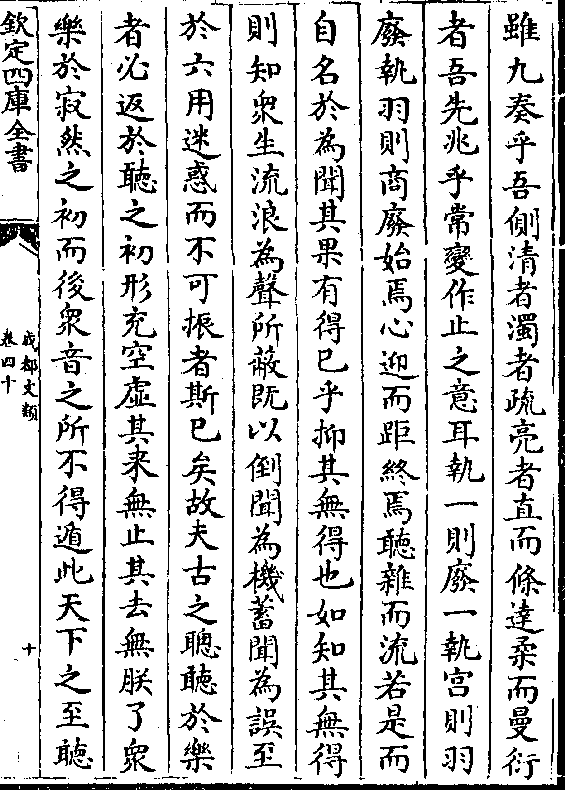 雖九奏乎吾側清者濁者疏亮者直而條達柔而曼衍
者吾先兆乎常變作止之意耳執一則廢一執宫則羽
廢執羽則商廢始焉心迎而距終焉聽雜而流若是而
自名於為聞其果有得已乎抑其無得也如知其無得
則知衆生流浪為聲所蔽既以倒聞為機蓄聞為誤至
於六用迷惑而不可振者斯已矣故夫古之聰聽於樂
者必返於聽之初形充空虛其来無止其去無朕了衆
樂於寂然之初而後衆音之所不得遁此天下之至聽
欽定四庫全書
成都文類
卷四十
十